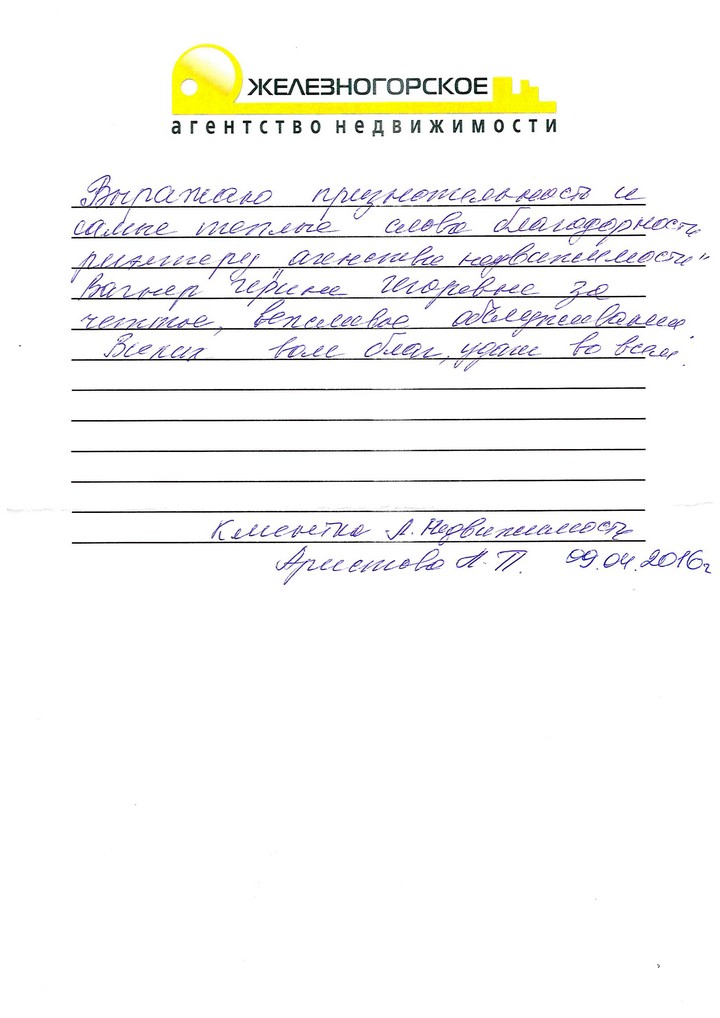 ЖЕЛЕЗНОГОРСКОЕ
агентство недвижимости
Выражаю признательность и
самые теплые слова благодарности
риэлтеру агенства недвижимости"
Вагнер Игоревне за
четкое, вежливое обслуживание.
Всяких вам благ, удачи во всем.
Клиентка А. Недвижимость
Аристова Л. П. 09.04.2016г